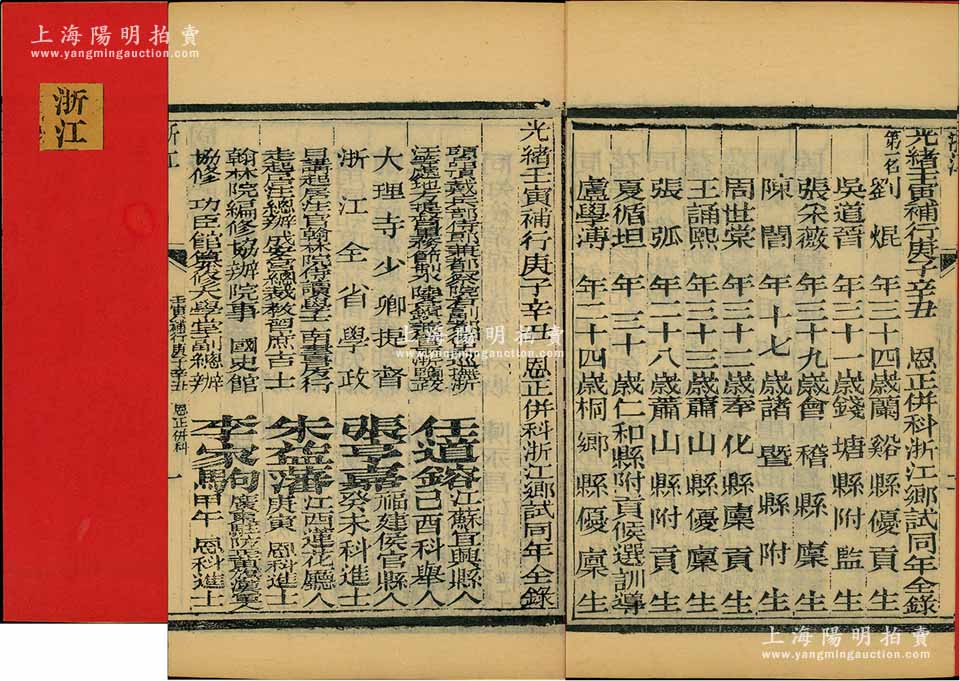 上海陽明拍賣
www.yangmingauction.com
浙江
上海陽明拍賣
www.yangmingauction.com
光緒壬寅補行庚子辛丑 恩正併科浙江鄉試同年全錄
第一名
劉焜 年三十四歲蘭谿縣優貢生
吳道晉 年三十一歲錢塘縣附監生
張宋薇 年三十九歲會稽縣廩生
陳誾 年十七歲諸暨縣附生
周世棠 年三十二歲奉化縣廩貢生
王誦熙 年三十三歲蕭山縣優廩生
張弧 年二十八歲蕭山縣附貢生
夏循坦 年三十歲仁和縣附貢候選訓導
盧學溥 年二十四歲桐鄉縣優廩生
光緒壬寅補行庚子辛丑 恩正併科浙江鄉試同年全錄
頭品頂戴兵部侍郎兼都察院右副都御史巡撫浙
任道鎔 江蘇宜興縣人
己酉科舉人
大理寺少卿提督
浙江全省學政
張亨嘉 福建侯官縣人
癸未科進士
日講起居注官翰林院侍讀學士南書房行
走
朱益藩 江西蓮花廳人
庚寅 恩科進士
翰林院編修協辦院事 國史館
協修 功臣館纂修大學堂副總辦
李家駒
甲午 恩科進士
浙江
壬寅補行庚子辛丑 恩正併科 一
上海陽明拍賣
www.yangmingauction.com
上海陽明拍賣
www.yangmingauction.com